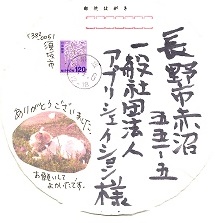 郵便はがき
長野市赤沼
五五一-五
一般社団法人
アプリシェイション様
須坂市
NIPPON 120
ありがとうございました
お願いして
よかったです。